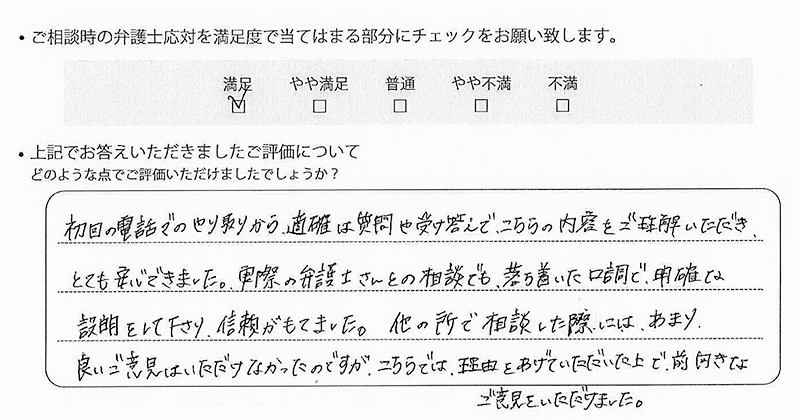 ・ご相談時の弁護士応対を満足度で当てはまる部分にチェックをお願い致します。
満足 やや満足 普通 やや不満 不満
☑ □ □ □ □
・上記でお答えいただきましたご評価について
どのような点でご評価いただけましたでしょうか？
初回の電話でのやり取りから、適確な質問や受け答えで、こちらの内容をご理解いただき、
とても安心できました。実際の弁護士さんとの相談でも、落ち着いた口調で、明確な
説明をして下さり、信頼がもてました。他の所で相談した際には、あまり
良いご意見はいただけなかったのですが、こちらでは、理由をあげていただいた上で、前向きな
ご意見をいただけました。